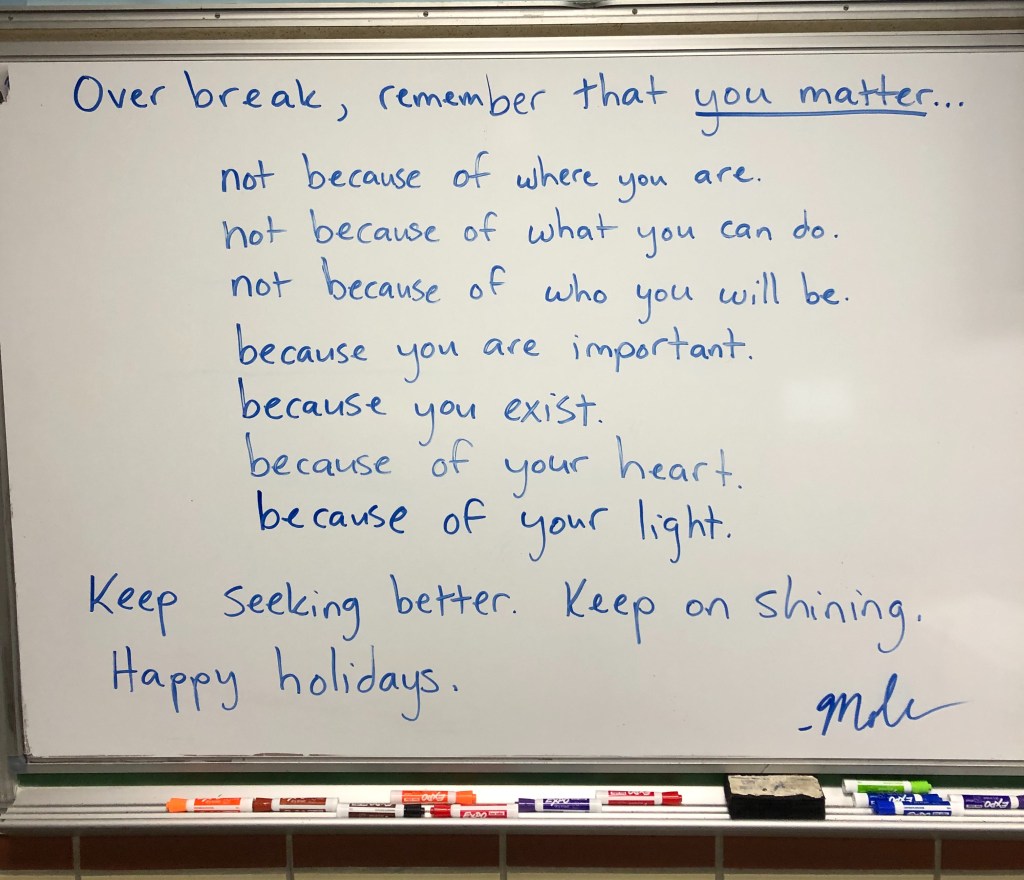 Over break, remember that you matter...
not because of where you are.
not because of what you can do.
not because of who you will be.
because you are important.
because you exist.
because of your heart.
because of your light.
Keep seeking better. Keep on shining.
Happy holidays.
EXPO
EXPO
EXPO
EXPO
EXPO
EXPO